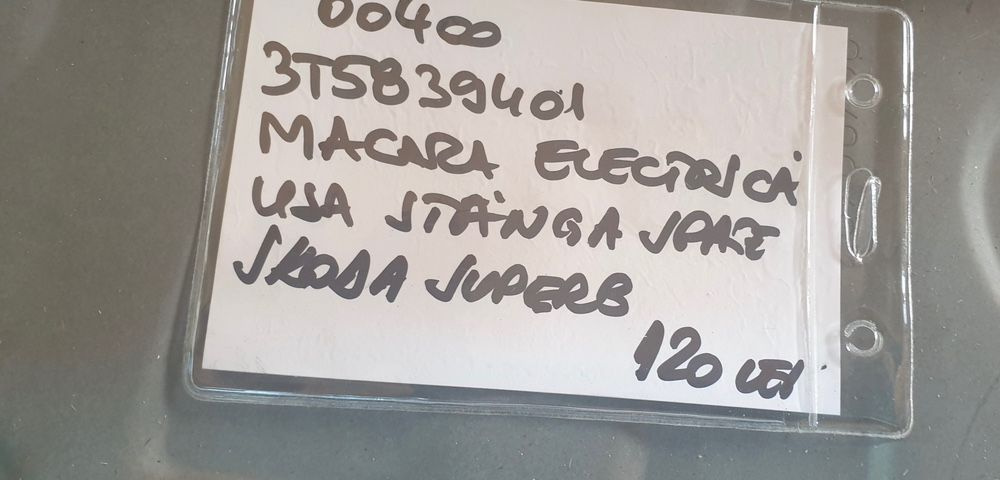 00400
3T5839401
MACARA ELECTRICĂ
USA STÂNGA SPATE
SKODA SUPERB
120 LEI